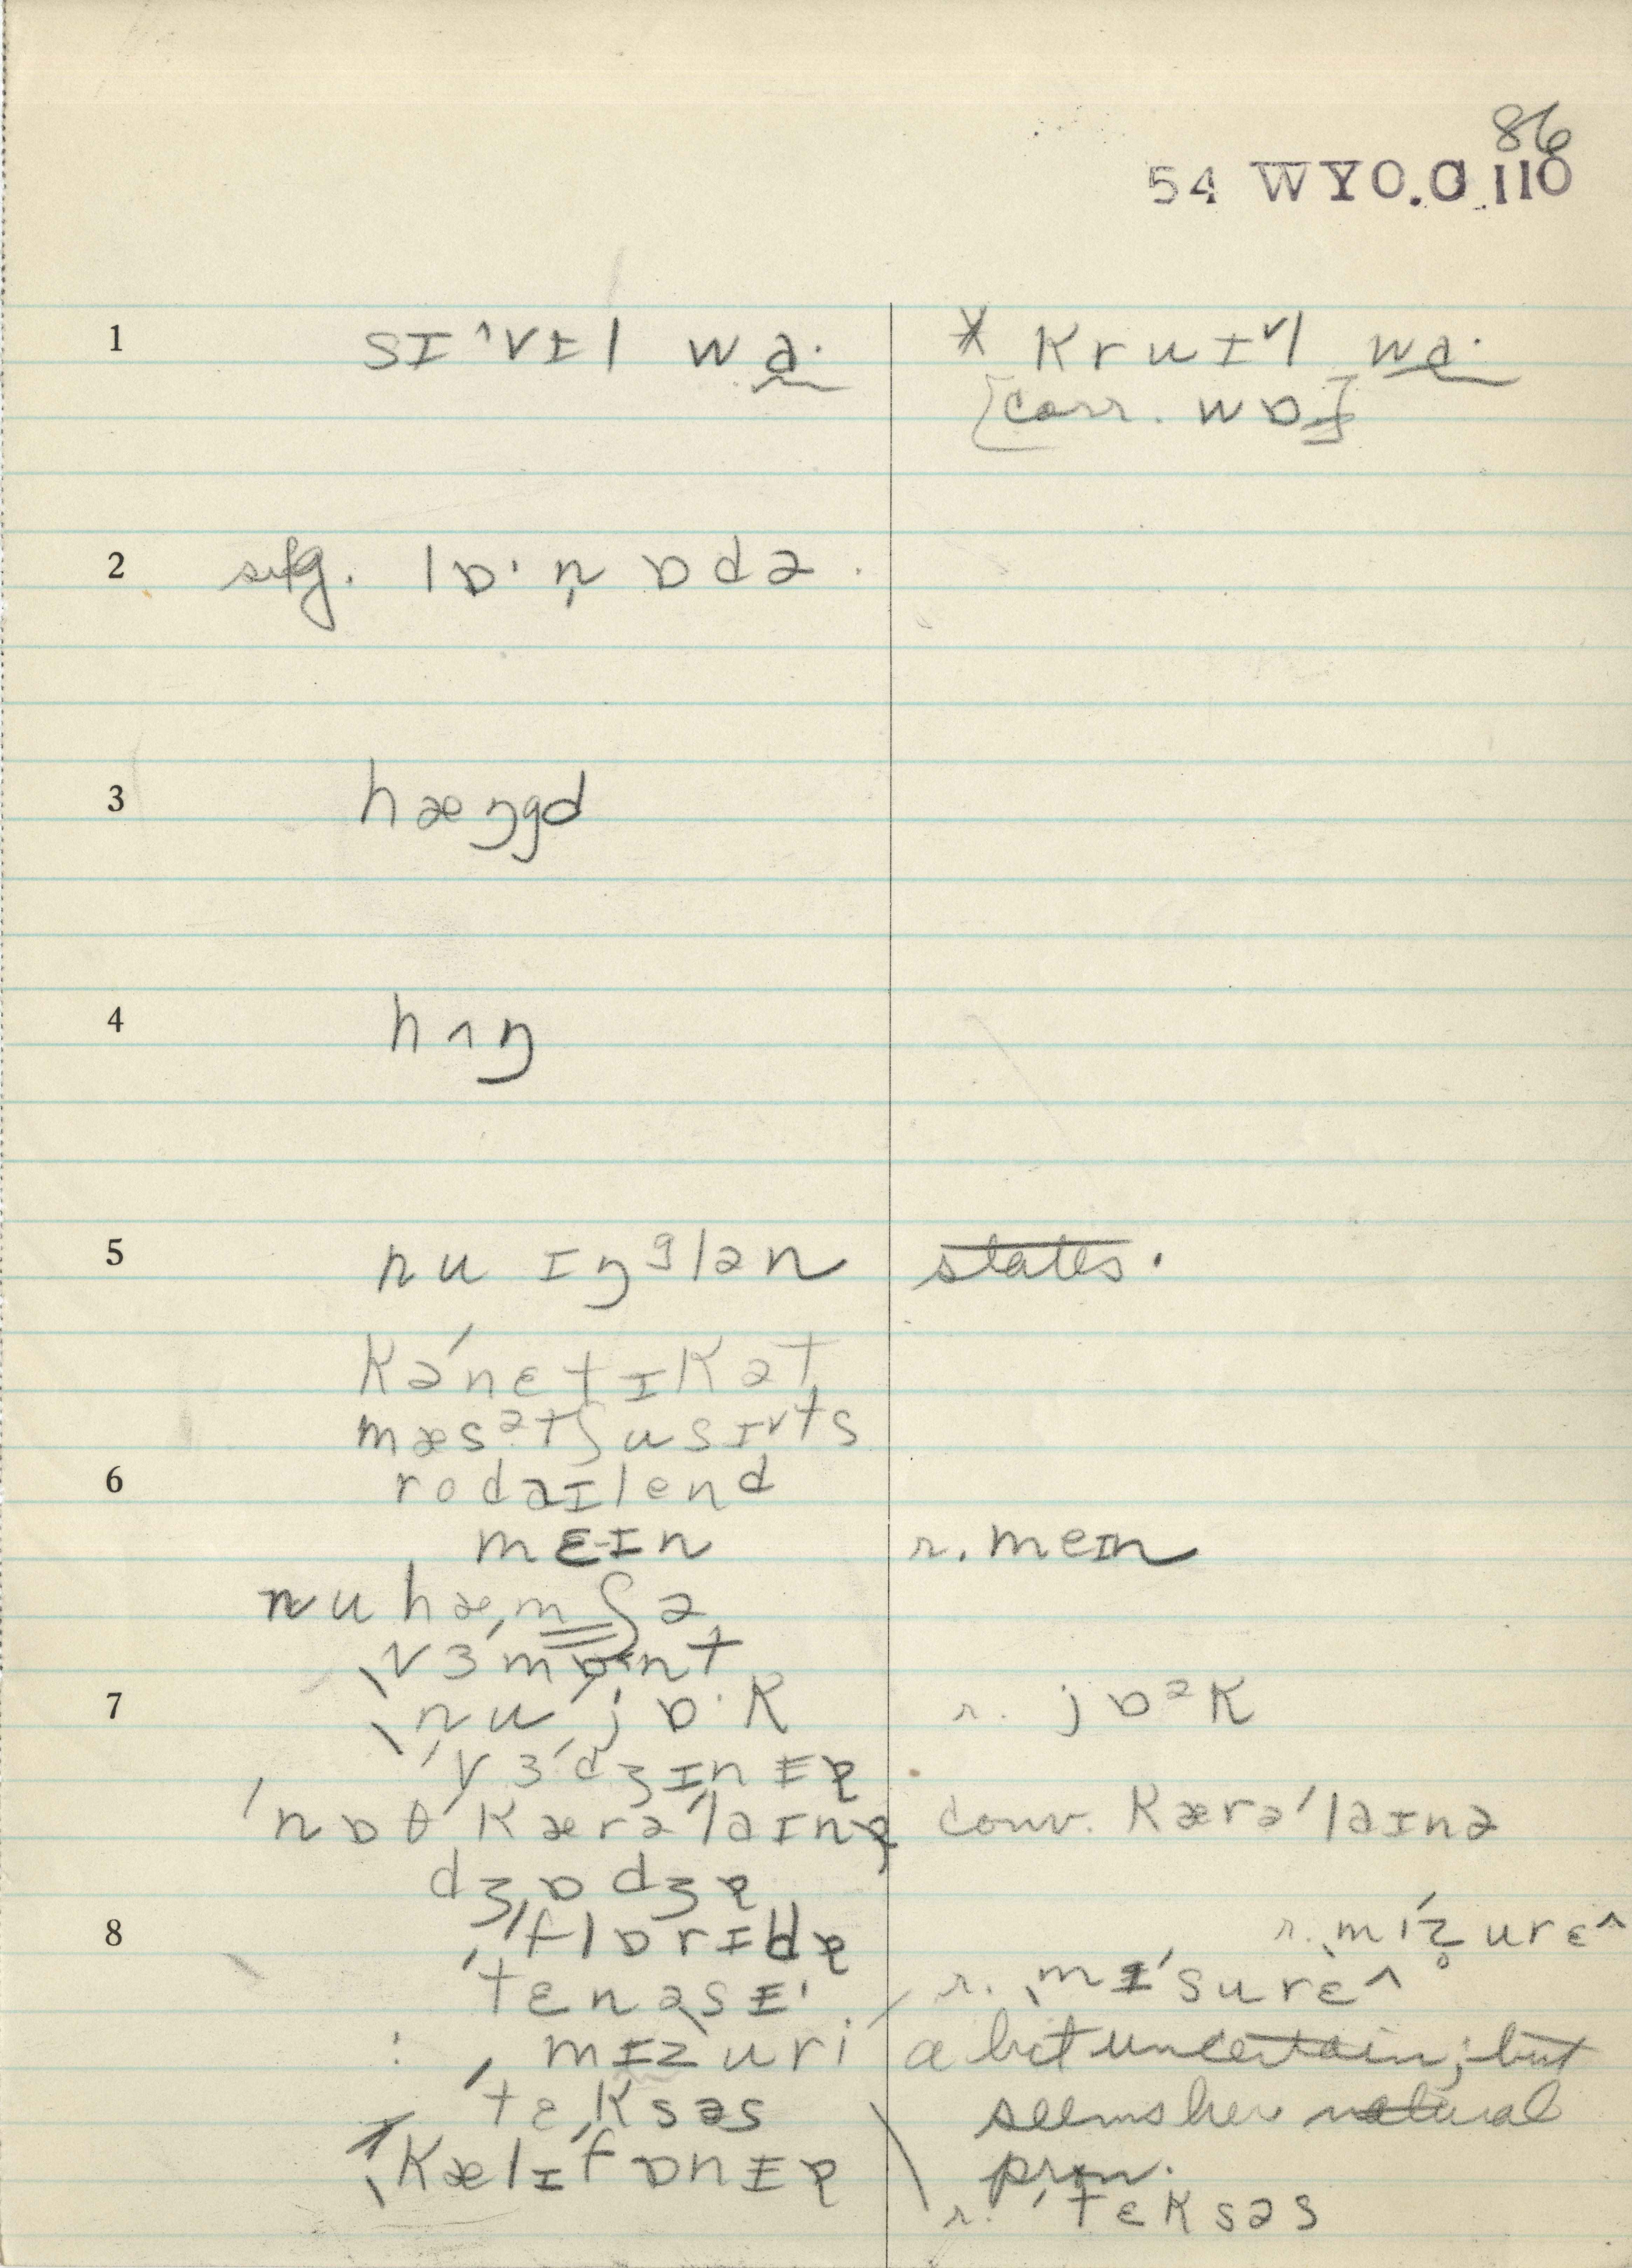 86
54 WYO.C 110
1 sɪ^vɪl wɑ· * Kruɪ˅l wɑ·
[corr. wɒ]
2 sug. lɒ·n̩ ɒdə.
3 hæŋgd
4 hʌŋ
5 nu ɪŋᵍlən states.
Kə'nɛtɪKət
mæsᵊtʃusɪ˅ts
6 rodaɪlend
mɛɪn r. meɪn
nu hæmʃə
vɜmɒnt
7 nu jɒ·K r. jɒᵊK
vɜ'dʒɪnɪə
'nɒθ Kærə'laɪnə conv. Kærə'laɪnə
dʒɒdʒə
8 'flɒrɪdə r. mɪ'z̥urɛ^
'tɛnəsɪ r. mɪ'surɛ^
: mɪzuri a bit uncertain; but
'tɛKsəs seems her natural
KælɪfɒnIə pron.
r. 'tɛKsəs